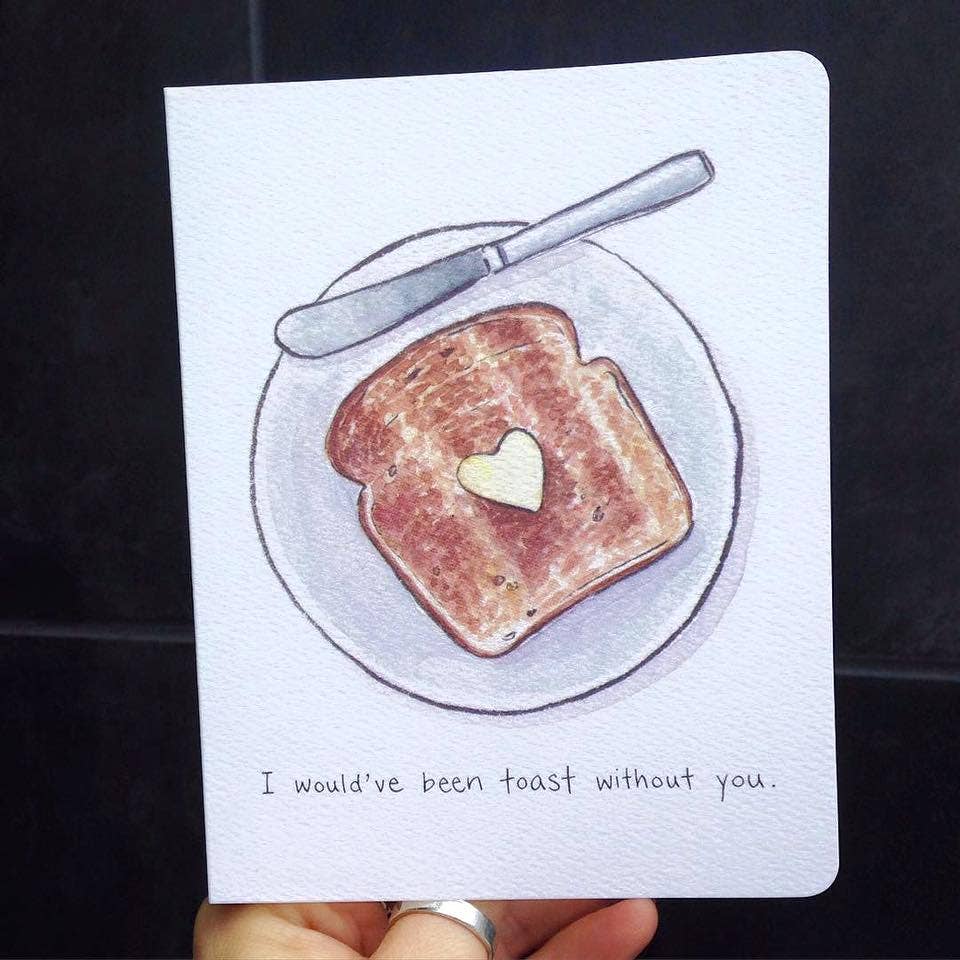 I would've been toast without you.